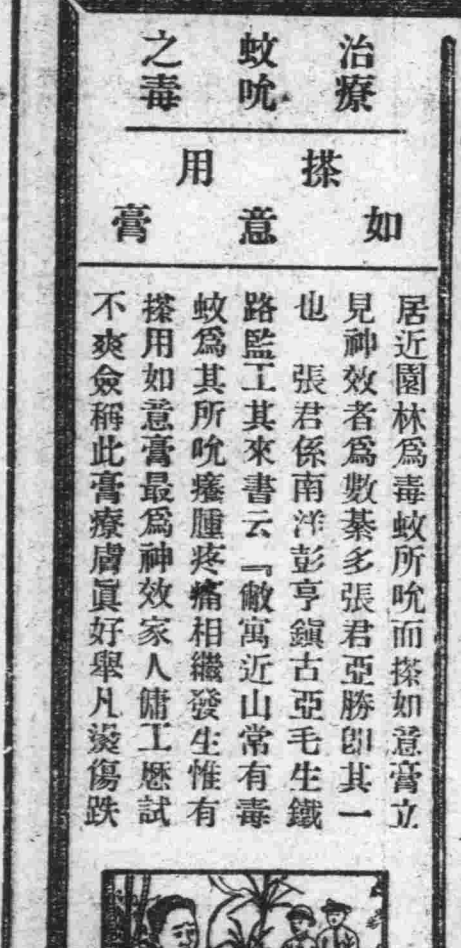 治療
蚊吮
之毒
搽用
如意膏
居近園林爲毒蚊所吮而搽如意膏立
見神效者爲數綦多張君亞勝卽其一
也　張君係南洋彭亨鎭古亞毛生鐵
路監工其來書云『敝寓近山常有毒
蚊爲其所吮癢腫疼痛相繼發生惟有
搽用如意膏最爲神效家人傭工歷試
不爽僉稱此膏療膚眞好舉凡燙傷跌